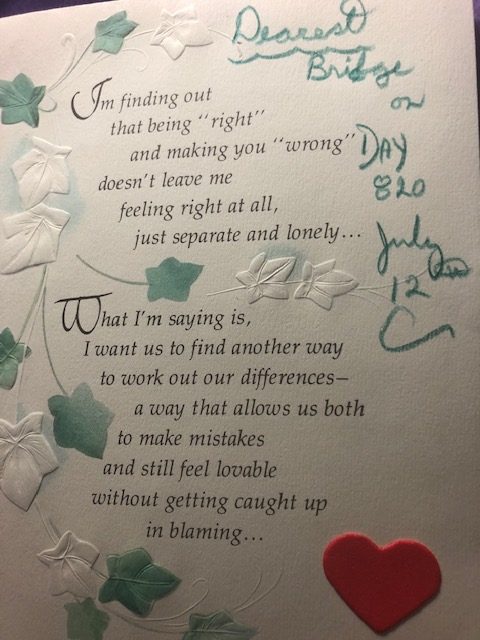 Dearest
Bridge
on
DAY
820
July
12th
I'm finding out
that being "right"
and making you "wrong"
doesn't leave me
feeling right at all,
just separate and lonely...
What I'm saying is,
I want us to find another way
to work out our differences—
a way that allows us both
to make mistakes
and still feel lovable
without getting caught up
in blaming...